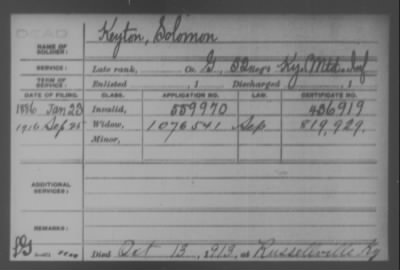 DEAD
NAME OF SOLDIER: Keyton, Solomon
SERVICE: Late rank, Co. G, 52 Reg't Ky. Mtd. Inf
TERM OF SERVICE: Enlisted , 1 Discharged , 1
DATE OF FILING. CLASS. APPLICATION NO. LAW. CERTIFICATE NO.
1886 Jan 23 Invalid, 559970 436919
1916 Sep 25 Widow, 1076541 Sep. 819,929.
Minor,
ADDITIONAL SERVICES:
REMARKS:
Died Oct 13, 1913, at Russellville Ky